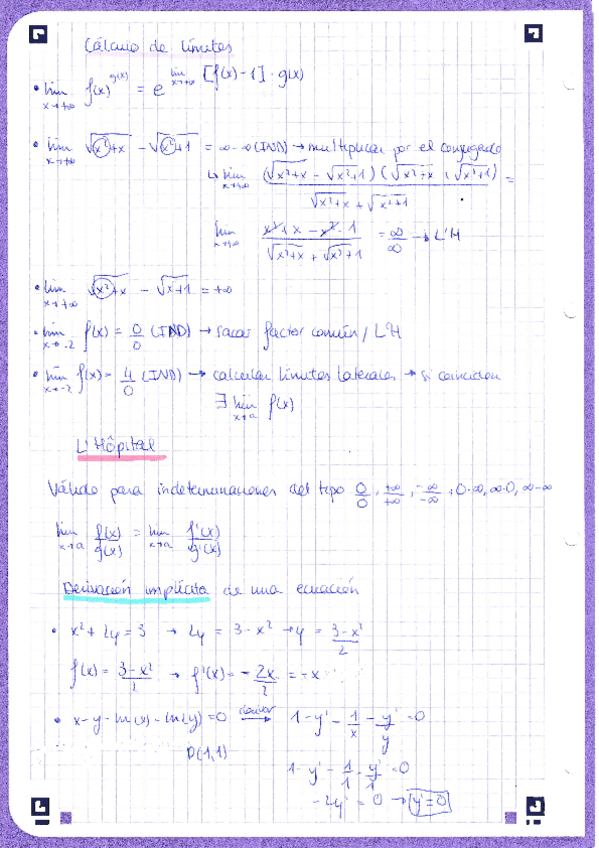 Cálculo de límites
• lim x→+∞ f(x)^g(x) = e^lim x→+∞ [f(x)-1]·g(x)
• lim x→+∞ √(x²+x) - √(x²+1) = ∞-∞ (IND) → multiplicar por el conjugado
↳ lim x→+∞ (√(x²+x) - √(x²+1)) (√(x²+x) + √(x²+1)) / √(x²+x) + √(x²+1) =
lim x→+∞ x²+x - x² - 1 / √(x²+x) + √(x²+1) = ∞/∞ → L'H
• lim x→+∞ √(x²+x) - √(x+1) = +∞
• lim x→-2 f(x) = 0/0 (IND) → sacar factor común / L'H
• lim x→-2 f(x) = 4/0 (IND) → calcular límites laterales → si coinciden
∃ lim x→a f(x)
L'Hôpital
Válido para indeterminaciones del tipo 0/0, +∞/+∞, -∞/-∞, 0·∞, ∞·0, ∞-∞
lim x→a f(x)/g(x) = lim x→a f'(x)/g'(x)
Derivación implícita de una ecuación
• x² + 2y = 3 → 2y = 3 - x² → y = 3-x²/2
f(x) = 3-x²/2 → f'(x) = -2x/2 = -x
• x - y - ln(x) - ln(y) = 0 derivar→ 1 - y' - 1/x - y'/y = 0
P(1,1)
1 - y' - 1/1 - y'/1 = 0
-2y' = 0 → y' = 0